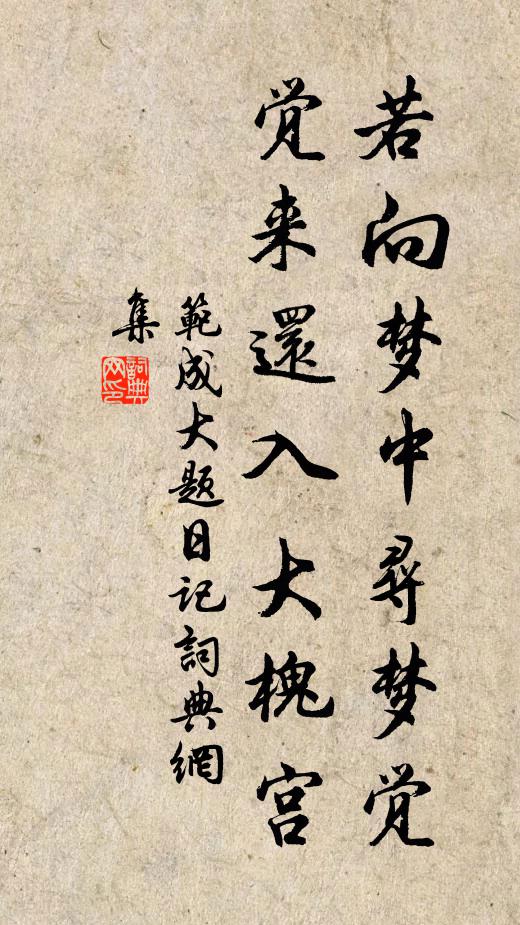 若向梦中尋梦觉
觉来還入大槐宫
範成大题日记詞典網
集
詞典
网印